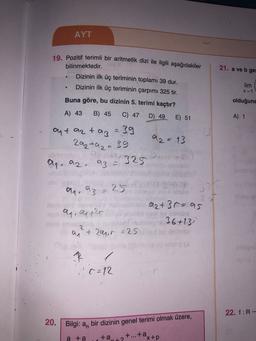 AYT
19. Pozitif terimli bir aritmetik dizi ile ilgili aşağıdakiler
bilinmektedir.
• Dizinin ilk üç teriminin toplamı 39 dur.
• Dizinin ilk üç teriminin çarpımı 325 tir.
Buna göre, bu dizinin 5. terimi kaçtır?
A) 43 B) 45 C) 47 D) 49 E) 51
a₁ + a₂ + a₃ = 39
2a₂ + a₂ = 39
a₂ = 13
a₁ . a₂ . a₃ = 325
a₁ . a₃ = 25
a₁ . a₁ + 2r
a₂ + 3r = a₅
36 + 13
a₁² + 2a₁r = 25
r = 12
20. Bilgi: aₙ bir dizinin genel terimi olmak üzere,
+...+a
x+p
21. a ve b
lim
olduğuna
A) 1
22. f : R